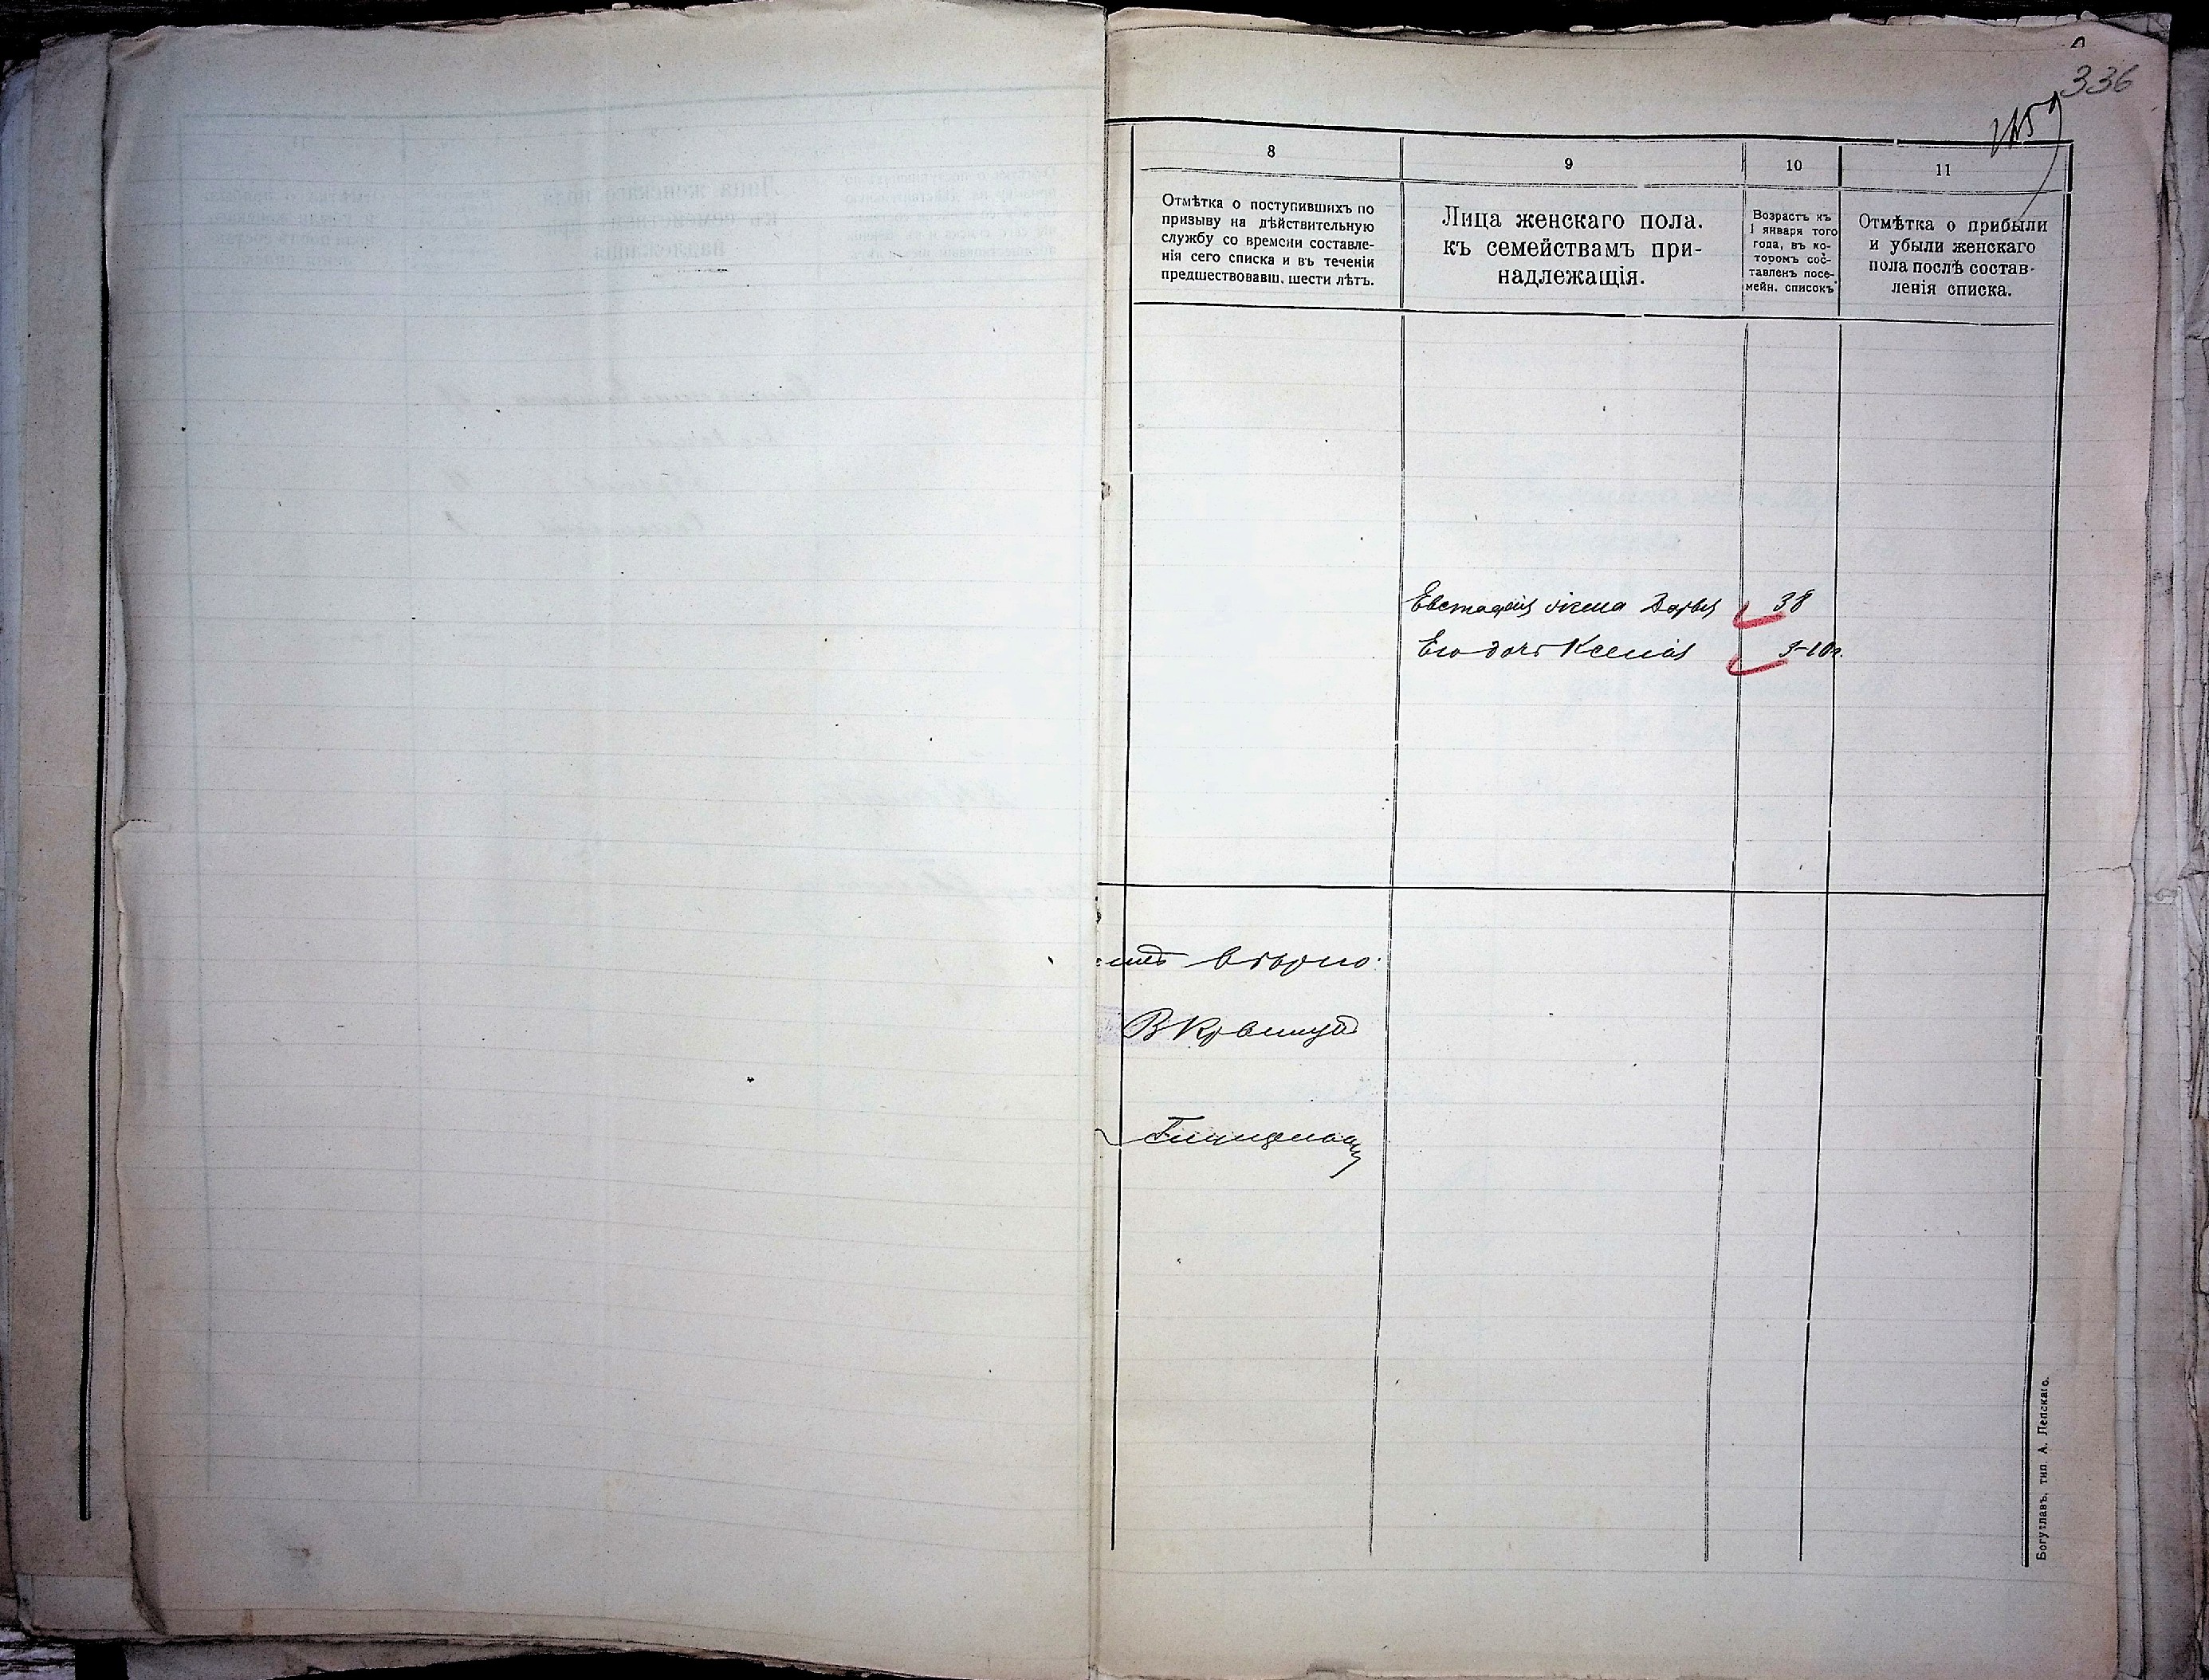 336
8
9
10
11
Отмѣтка о поступившихъ по
призыву на дѣйствительную
службу со времени составле-
нія сего списка и въ теченіи
предшествовавш. шести лѣтъ.
Лица женскаго пола.
къ семействамъ при-
надлежащія.
Возрастъ къ
1 января того
года, въ ко-
торомъ сос-
тавленъ посе-
мейн. списокъ
Отмѣтка о прибыли
и убыли женскаго
пола послѣ состав-
ленія списка.
Евстафія жена Дарья 38
Его дочь Ксенія
вѣрно.
Богуславъ, тип. А. Лепскаго.